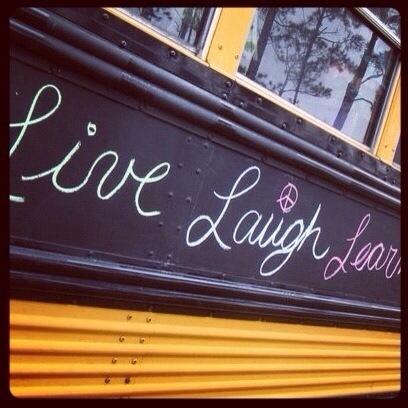 Live Laugh Learn